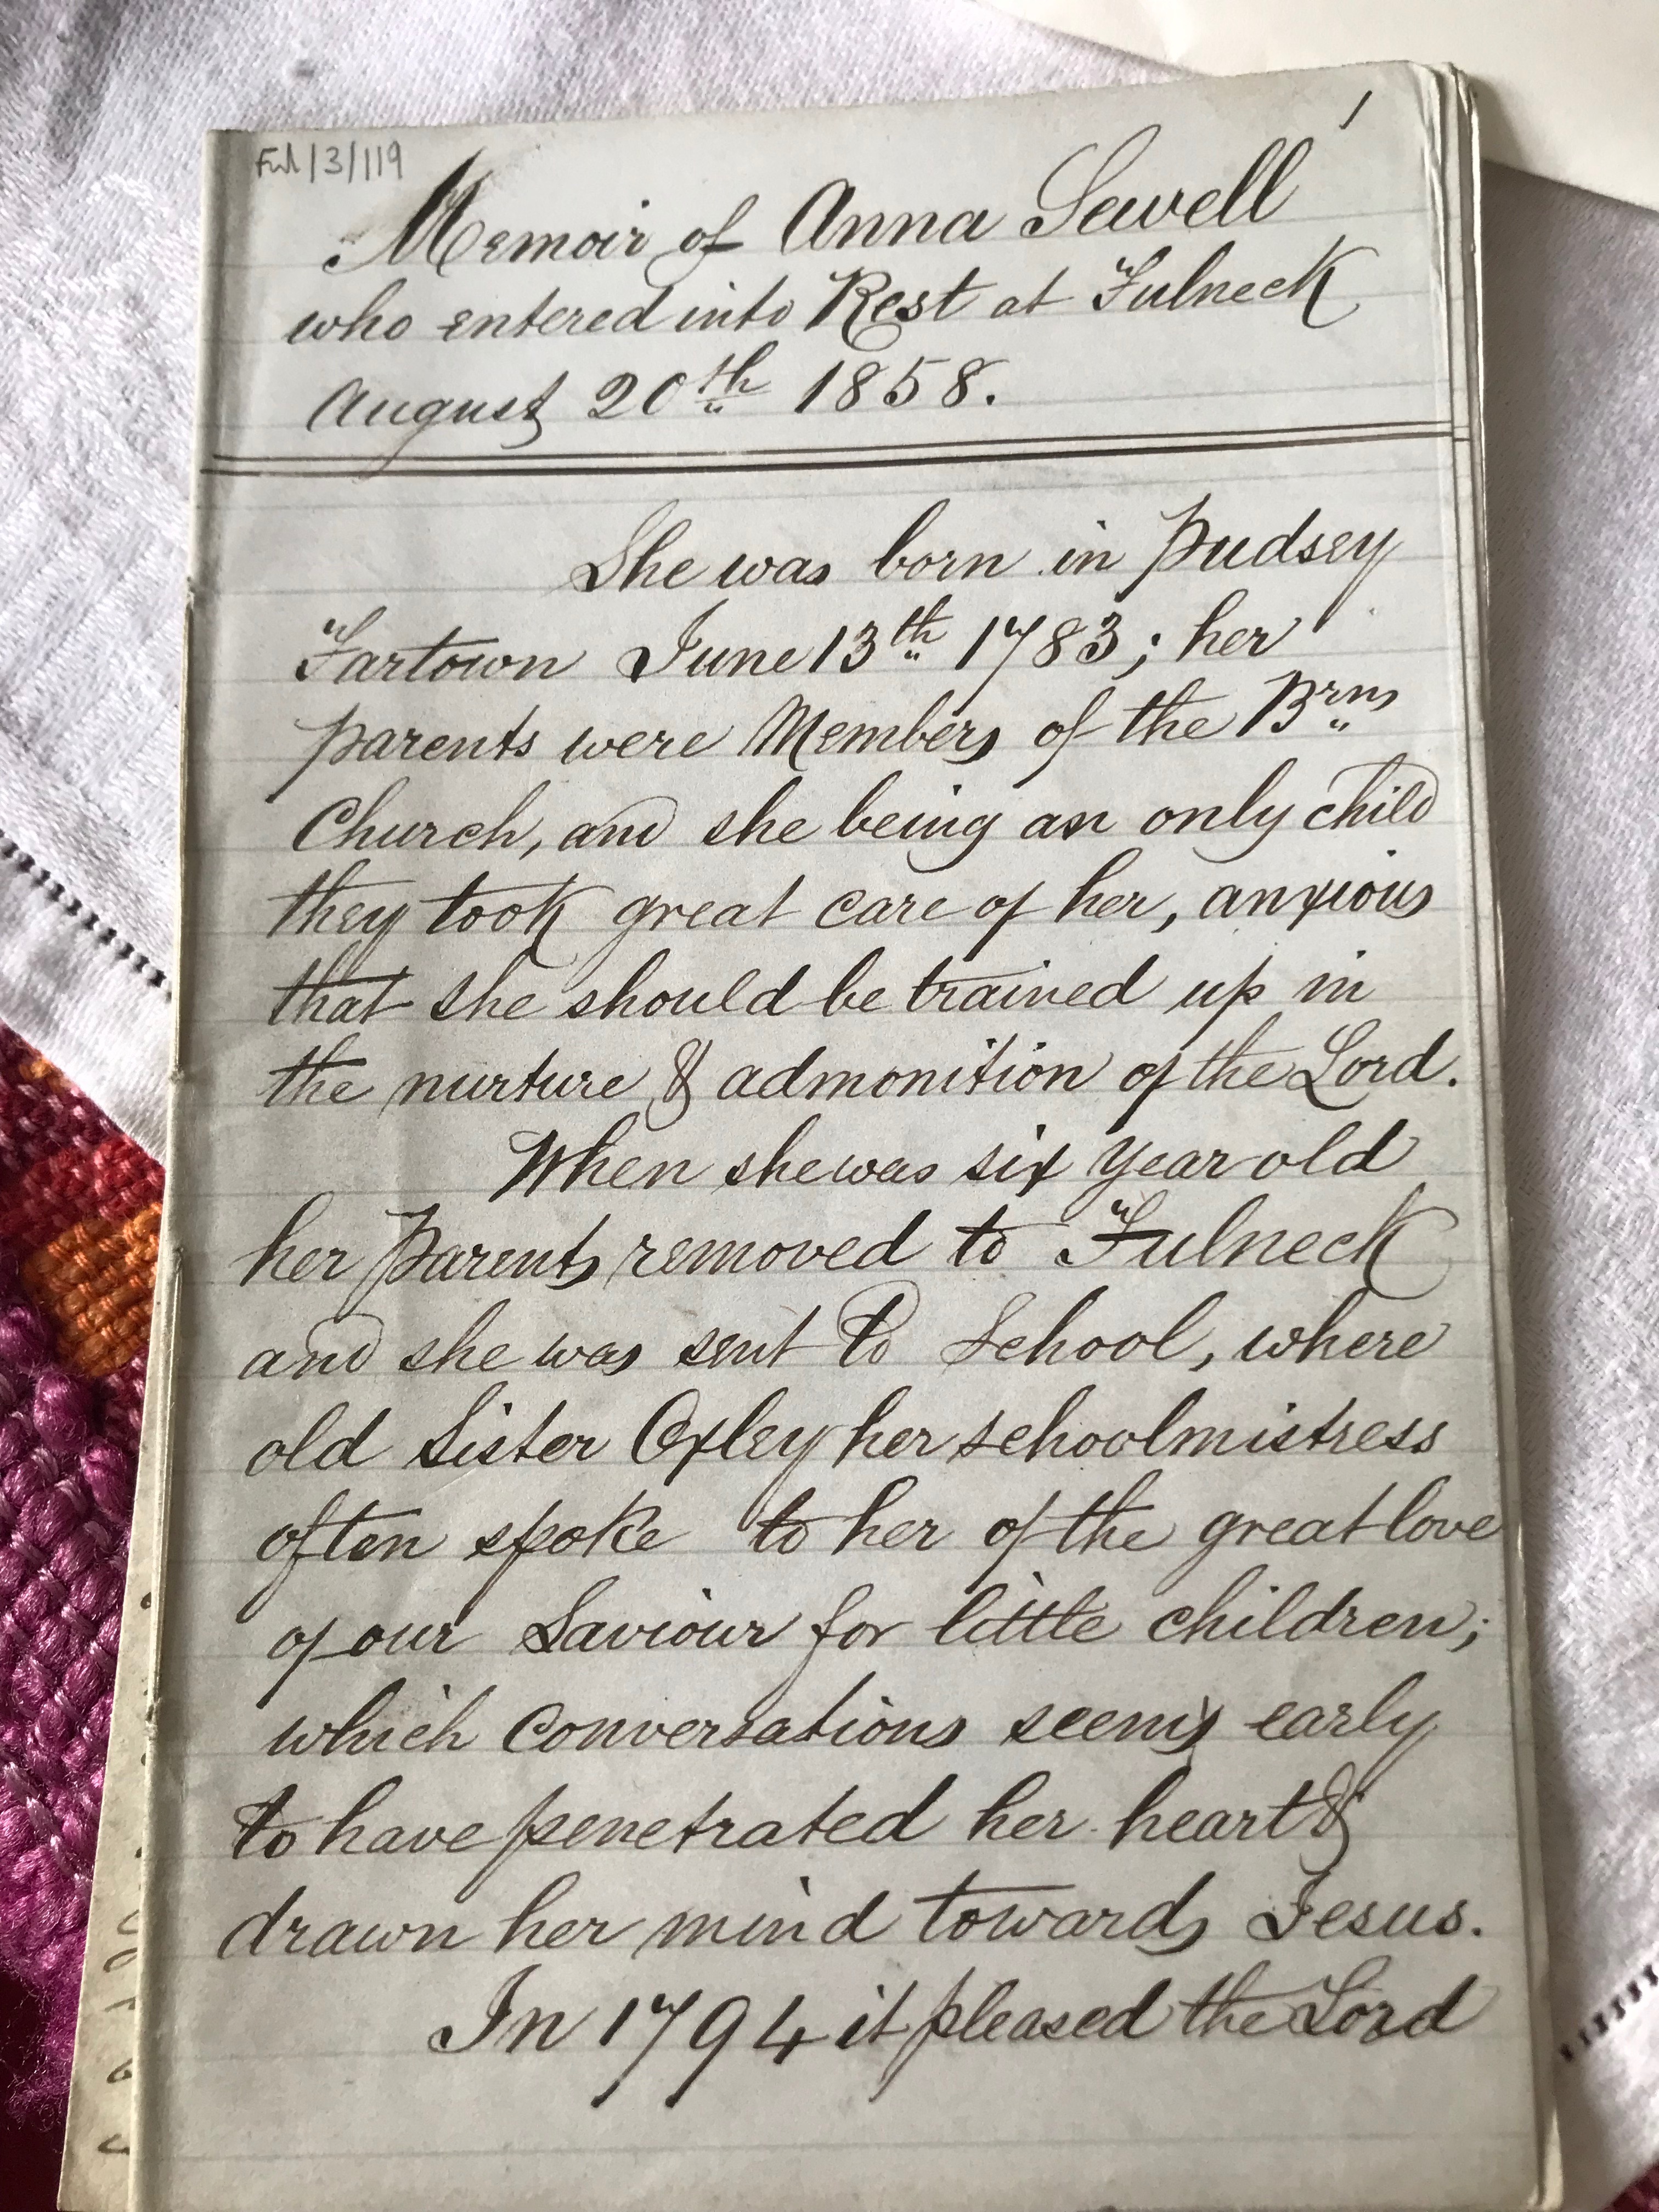 1
Ful/3/119
Memoir of Anna Sewell
who entered into Rest at Fulneck
August 20th 1858.
She was born in Pudsey
Fartown June 13th 1783; her
parents were Members of the Brns
Church, and she being an only child
they took great care of her, anxious
that she should be trained up in
the nurture & admonition of the Lord.
When she was six year old
her Parents removed to Fulneck
and she was sent to School, where
old Sister Oxley her schoolmistress
often spoke to her of the great love
of our Saviour for little children;
which conversations seems early
to have penetrated her heart &
drawn her mind towards Jesus.
In 1794 it pleased the Lord